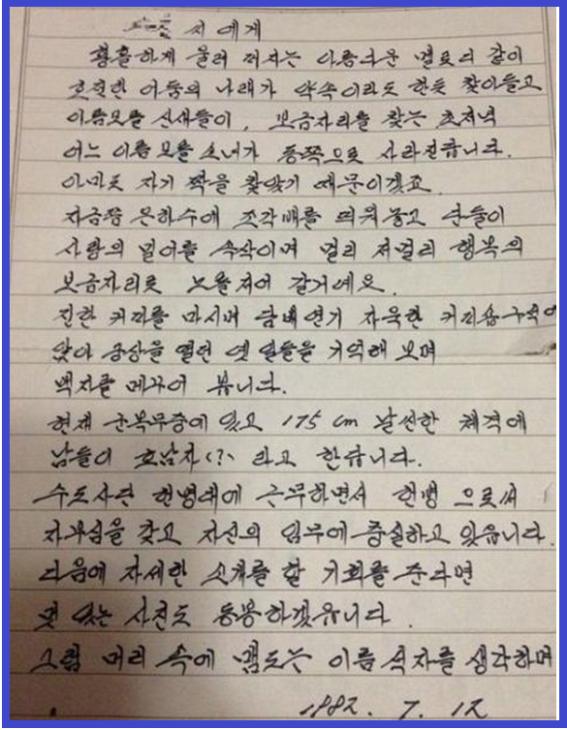 씨에게
황홀하게 울려 퍼지는 아름다운 멜로디 같이
고요한 어둠의 나래가 약속이라도 한듯 찾아들고
이름모를 산새들이, 보금자리를 찾는 초저녁
어느 이름 모를 소녀가 동쪽으로 사라진답니다.
아마도 자기 짝을 찾았기 때문이겠죠
지금쯤 은하수에 조각배를 띄워놓고 단둘이
사랑의 밀어를 속삭이며 멀리 저멀리 행복의
보금자리로 노를 저어 갈거예요.
진한 커피를 마시며 담배연기 자욱한 커피숍 구석에
앉아 공상을 열면 옛 일들을 기억해 보며
백지를 메꾸어 봅니다.
현재 군복무중에 있고 175 cm 날씬한 체격에
남들이 호남자(?) 라고 한답니다.
수도사단 헌병대에 근무하면서 헌병 으로써
자부심을 갖고 자신의 임무에 충실하고 있읍니다.
다음에 자세한 소개를 할 기회를 준다면
멋 있는 사진도 동봉하겠읍니다.
그럼 머리 속에 맴도는 이름 석자를 생각하며
1982. 7. 12